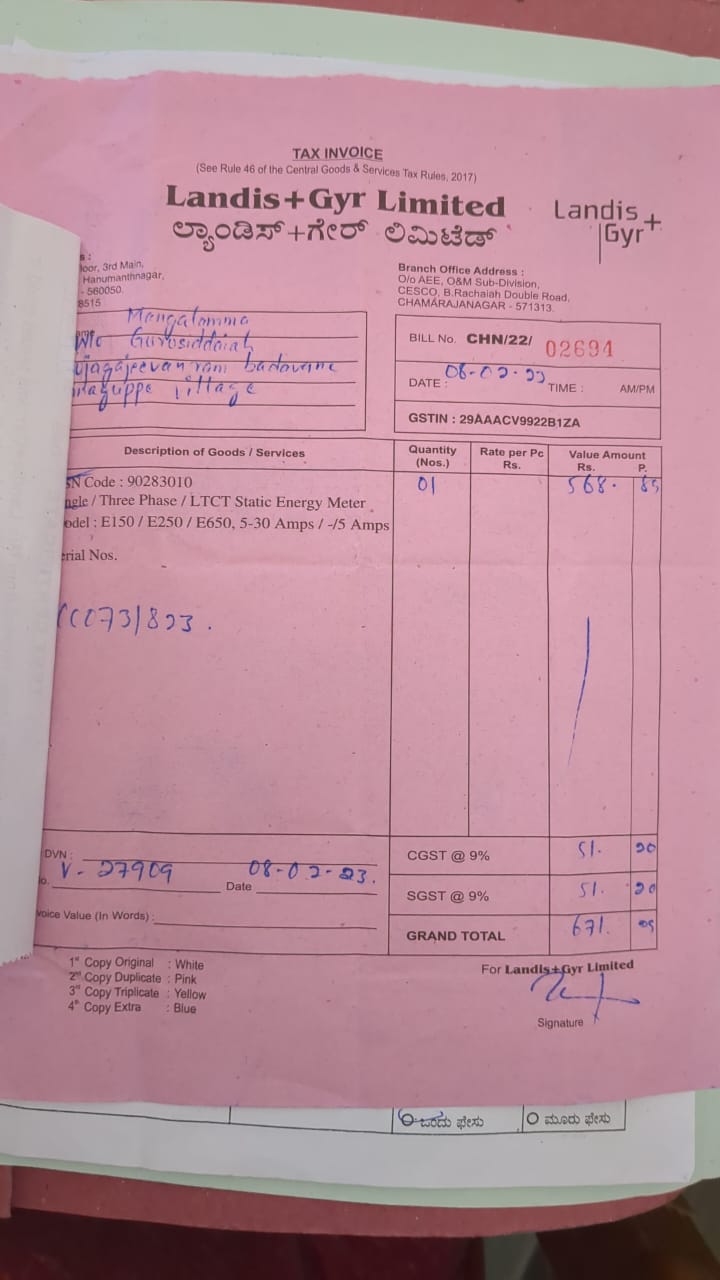 TAX INVOICE
(See Rule 46 of the Central Goods & Services Tax Rules, 2017)
Landis+Gyr Limited
ಲ್ಯಾಂಡಿಸ್+ಗೇರ್ ಲಿಮಿಟೆಡ್
Landis+
Gyr
s :
loor, 3rd Main,
Hanumanthnagar,
- 560050.
8515
Branch Office Address :
O/o AEE, O&M Sub-Division,
CESCO, B.Rachaiah Double Road,
CHAMARAJANAGAR - 571313.
Mangalamma
W/o Gurusiddaiah
badavane
village
BILL No. CHN/22/ 02694
DATE : 08-02-23 TIME : AM/PM
GSTIN : 29AAACV9922B1ZA
Description of Goods / Services
Quantity (Nos.)
Rate per Pc Rs.
Value Amount Rs. P.
SN Code : 90283010
ngle / Three Phase / LTCT Static Energy Meter
odel : E150 / E250 / E650, 5-30 Amps / -/5 Amps
erial Nos.
01 568. 85
DVN :
V - 27909
o. Date 08-02-23.
voice Value (In Words) :
CGST @ 9% 51. 20
SGST @ 9% 51. 20
GRAND TOTAL 671.
1st Copy Original : White
2nd Copy Duplicate : Pink
3rd Copy Triplicate : Yellow
4th Copy Extra : Blue
For Landis+Gyr Limited
Signature
ಒಂದು ಫೇಸು
ಮೂರು ಫೇಸು